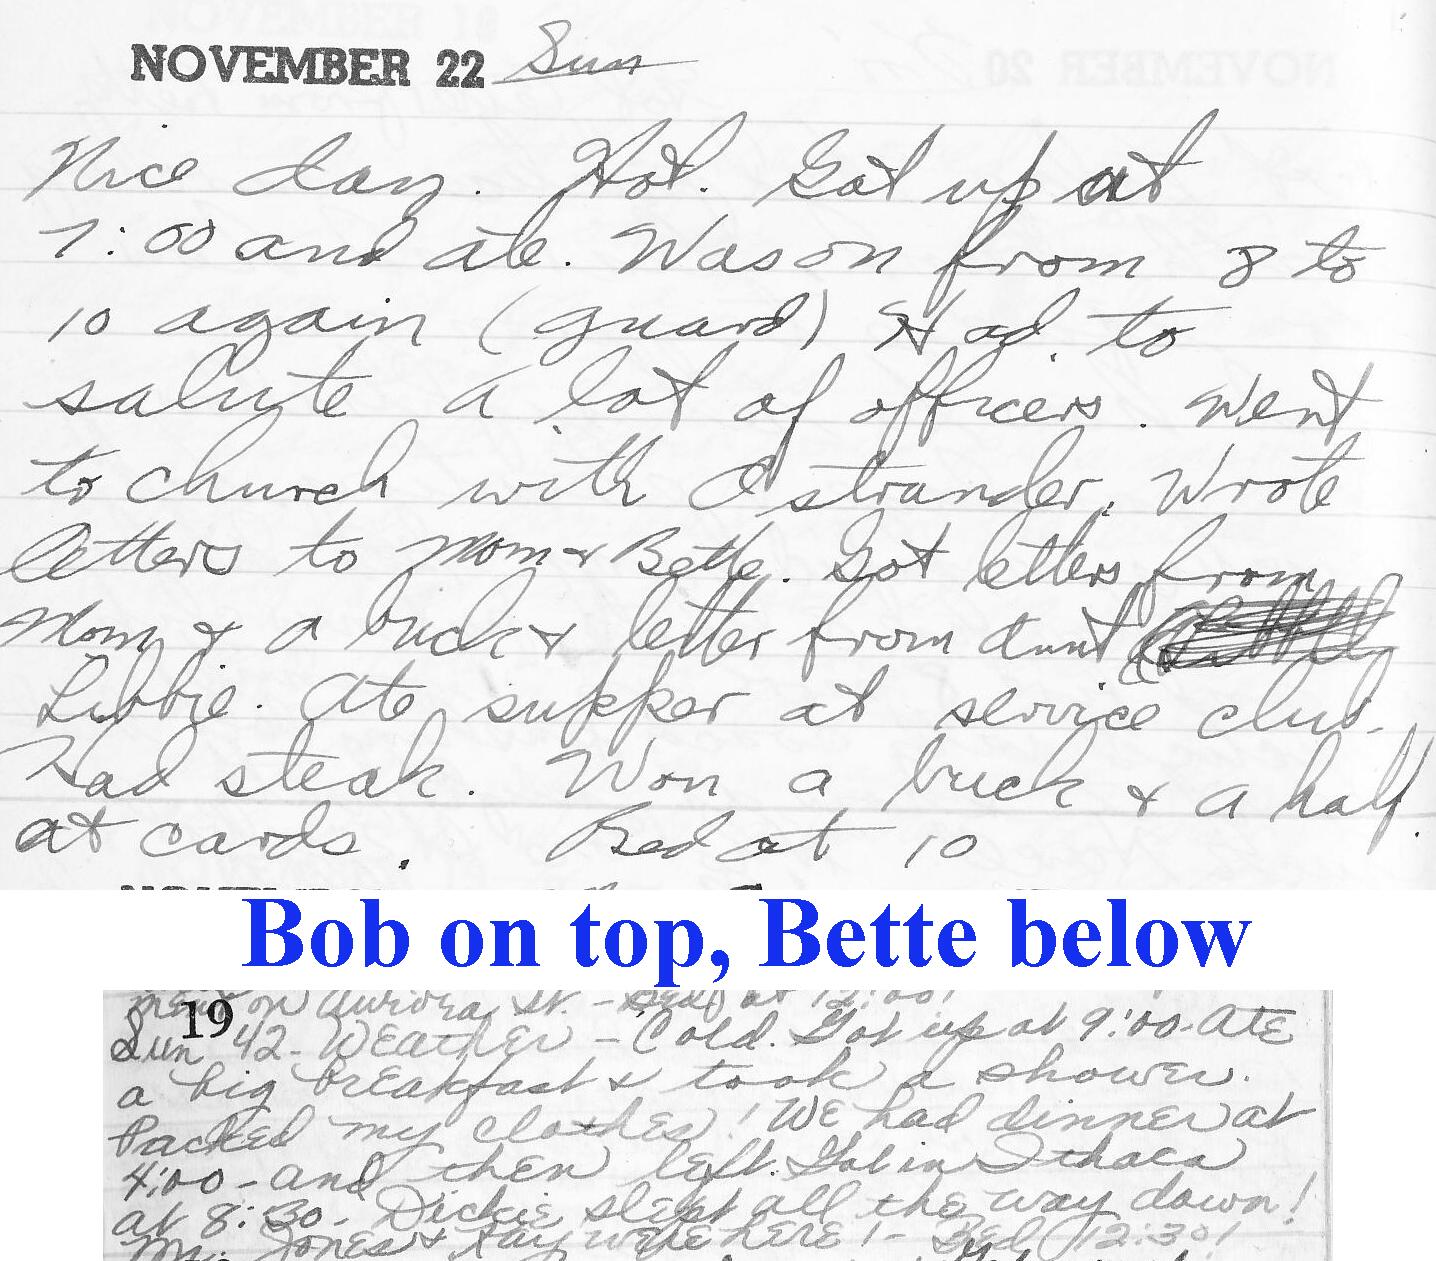 NOVEMBER 22 Sun
Nice day. Hot. Got up at
7:00 and ate. Was on from 8 to
10 again (guard) Had to
salute a lot of officers. Went
to church with Ostrander. Wrote
letters to Mom & Bette. Got letters from
Mom & a buck & letter from Aunt
Libbie. Ate supper at service club.
Had steak. Won a buck & a half
at cards. Bed at 10
Bob on top, Bette below
on Aurora St. - Bed at 12:00!
19
Sun 42 - Weather - Cold. Got up at 9:00 - Ate
a big breakfast & took a shower.
Packed my clothes! We had dinner at
4:00 - and then left. Got in Ithaca
at 8:30 - Dickie slept all the way down!
Mr. Jones & Kay were here! - Bed 12:30!